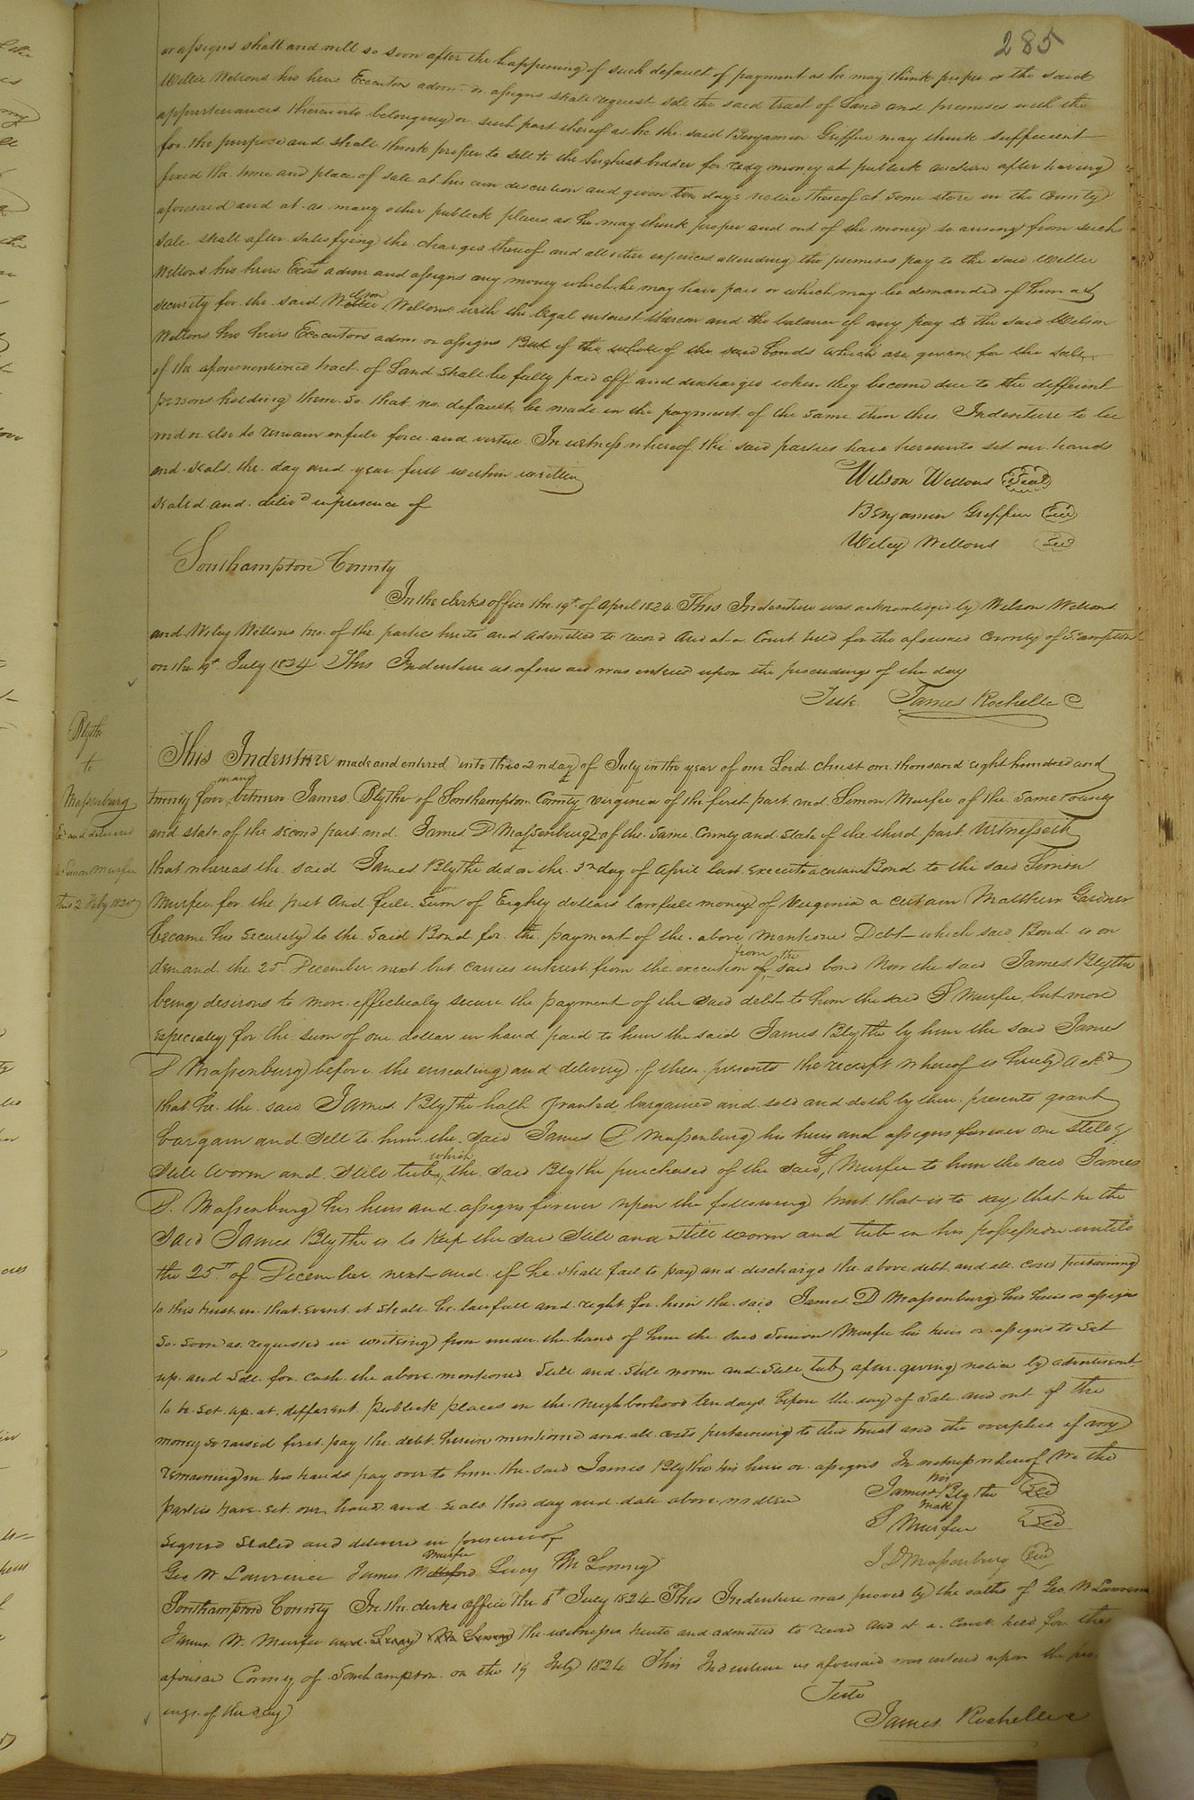 285
or assigns shall and will so soon after the happening of such default of payment as he may think proper or the said
Willie Wellons his heirs Executors admrs or assigns shall request sell the said tract of Land and premises with the
appurtenances thereunto belonging or such part thereof as he the said Benjamin Griffin may think sufficient
for the purpose and shall think proper to sell to the highest bidder for redy money at publick auction after having
fixed the time and place of sale at his own discretion and given ten days notice thereof at some store in the County
aforesaid and at as many other publick places as he may think proper and out of the money so arising from such
sale shall after satisfying the charges thereof and all other expences attending the premises pay to the said Willie
Wellons his heirs Exets admr and assigns any money which he may have paid or which may be demanded of him as
security for the said Wilson Wellons with the legal interest thereon and the balance if any pay to the said Wilson
Wellons his heirs Executors adms or assigns But if the whole of the said bonds which are given for the sale
of the aforementioned tract of Land shall be fully paid off and discharged when they become due to the different
persons holding them so that no default be made in the payment of the same then this Indenture to be
void or else to remain in full force and virtue In witness whereof the said parties have hereunto set our hands
and seals the day and year first within written
Wilson Wellons Seal
Sealed and delivd in presence of
Benjamin Griffin Seal
Wiley Wellons Seal
Southampton County
In the clerks office the 19th of April 1824 This Indenture was acknowledged by Wilson Wellons
and Wiley Wellons two of the parties hereto and admitted to record And at a Court held for the aforesaid County of Sampton
on the 19th July 1824 This Indenture as aforesaid was entered upon the proceedings of the day
Teste James Rochelle C
Blythe
to
Massenburg
Ex and delivered
to Simon Murfee
this 2 Feby 1825
This Indenture made and entered into this 2nday of July in the year of our Lord christ one thousand eight hundred and
twenty four between James Blythe of Southampton County virginia of the first part and Simon Murfee of the same County
and state of the second part and James D Massenburg of the same County and State of the third part Witnesseth
that whereas the said James Blythe did on the day of April last execute a certain Bond to the said Simon
Murfee for the just and full Sum of Eighty dollars lawfull money of Virginia a certain Matthew Gardner
became his Security to the said Bond for the payment of the above mentioned Debt which said Bond is on
demand the 25 December next but carries interest from the execution of from the said bond Now the said James Blythe
being desirous to more effectually secure the payment of the said debt to him the said S Murfee but more
especially for the sum of one dollar in hand paid to him the said James Blythe by him the said James
D Massenburg before the ensealing and delivery of these presents the receipt whereof is hereby ackd
that he the said James Blythe hath granted bargained and sold and doth by these presents grant
bargain and sell to him the said James D Massenburg his heirs and assigns forever one Still &
Still worm and Still tub which the said Blythe purchased of the said S Murfee to him the said James
D. Massenburg his heirs and assigns forever upon the following trust that is to say, that he the
Said James Blythe is to keep the said Still and Still worm and tub in his possession untill
the 25th of December next and if he shall fail to pay and discharge the above debt and all cost pertaining
to this trust in that event it shall be lawfull and right for him the said James D Massenburg his heirs or assigns
So soon as requested in writing from under the hand of him the said Simon Murfee his heirs or assigns to set
up and sell for cash the above mentioned Still and Still worm and Still tub after giving notice by advertisment
to be set up at different publick places in the neighborhood ten days before the day of sale and out of the
money so raised first pay the debt herein mentioned and all costs pertaining to this trust and the overplus if any
remaining in his hands pay over to him the said James Blythe his heirs or assigns In witness whereof We the
parties have set our hands and seals this day and date above written
James his mark Blythe Seal
S Murfee Seal
Signed Sealed and delivered in presence of
J D Massenburg Seal
Geo W Lawrence James W Murfee
Southampton County In the clerks office the 6th July 1824 This Indenture was proved by the oaths of Geo W Lawrence
James W. Murfee and the witnesses hereto and admitted to record And at a Court held for the
aforesaid County of Southampton on the 19 July 1824 This Indenture as aforesaid was entered upon the proceed
ings of the day
Teste
James Rochelle C